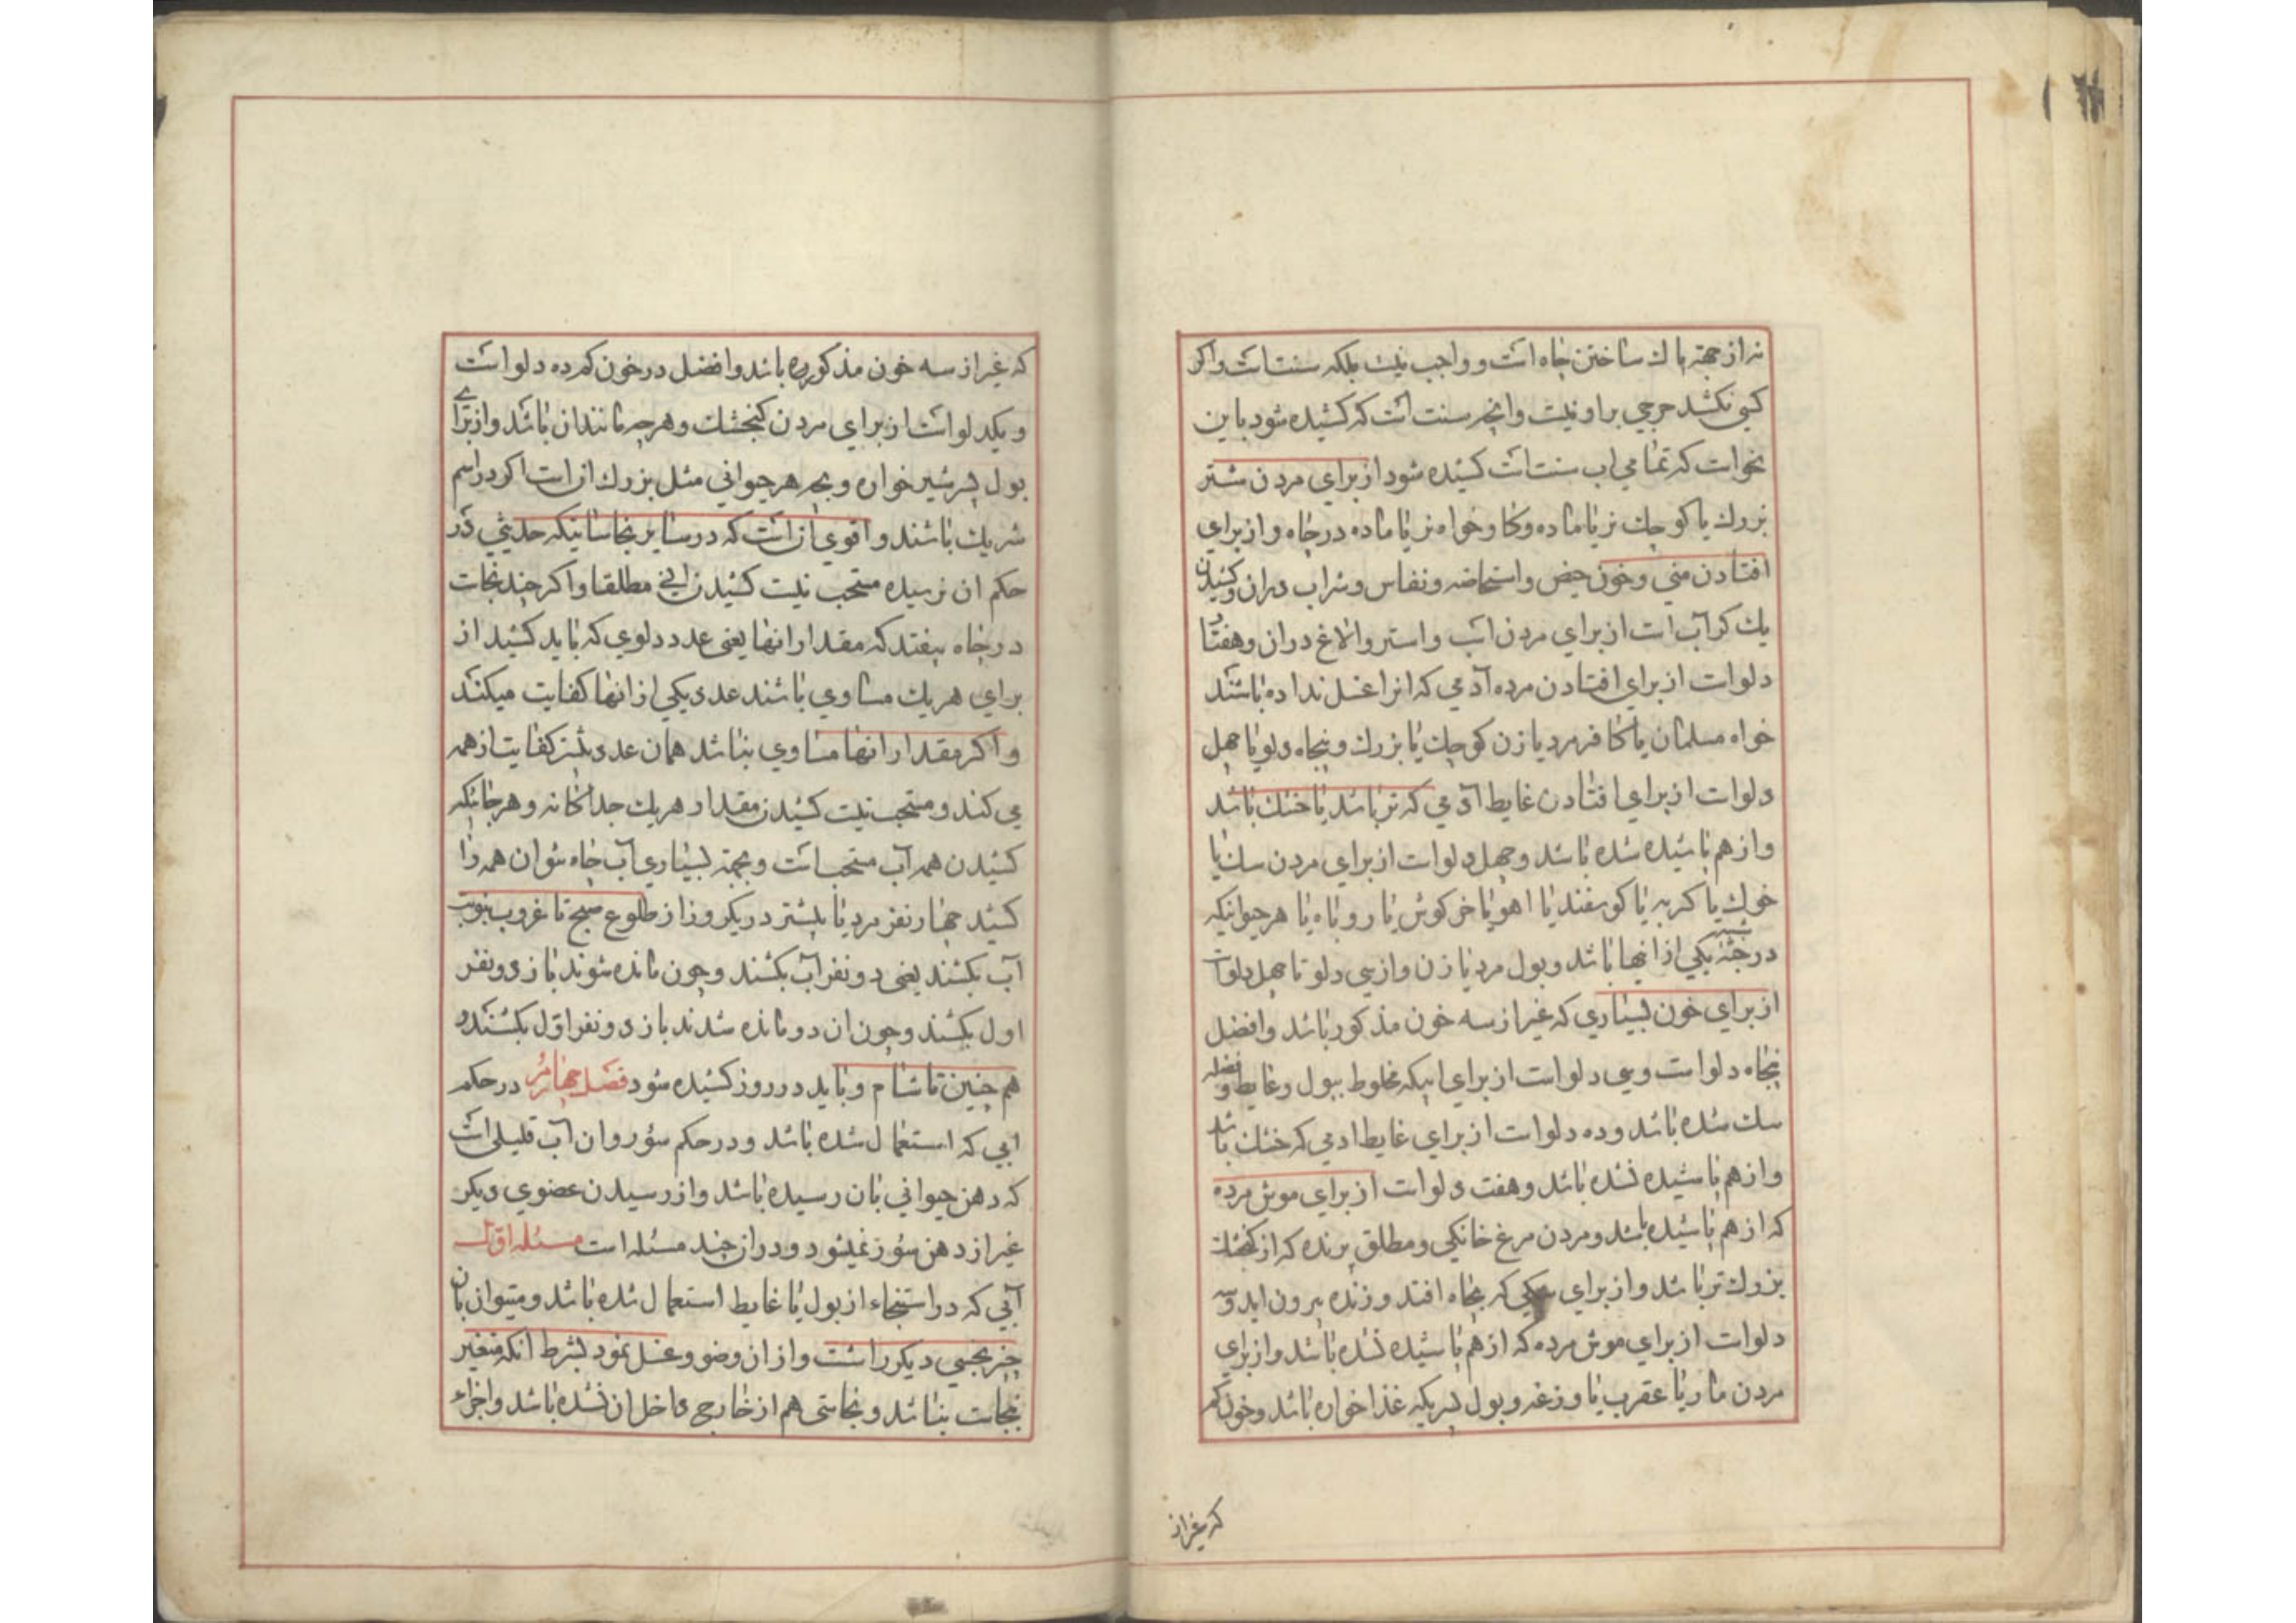 نه از جهة پاك ساختن چاه است و واجب نیست بلکه سنت است و اکر
کسی نکشد حرجی بر او نیست و انچه سنت است که کشیده شود باین
نحو است که تمامی اب سنت است کشیده شود از برای مردن شتر
بزرك یا کوچك نر یا ماده و کاو خواه نر یا ماده در چاه و از برای
افتادن منی و خون حیض و استحاضه و نفاس و شراب در ان و کشیدن
یك کر آب است از برای مردن اسب و استر و الاغ در ان و هفتاد
دلو است از برای افتادن مرده آدمی که انرا غسل نداده باشند
خواه مسلمان یا کافر مرد یا زن کوچك یا بزرك و پنجاه دلو یا چهل
دلو است از برای افتادن غایط آدمی که تر باشد یا خشك باشد
و از هم پاشیده شده باشد و چهل دلو است از برای مردن سك یا
خوك یا کربه یا کوسفند یا اهو یا خرکوش یا روباه یا هر حیوانیکه
در جثه شبیه یکی از اینها باشد و بول مرد یا زن و از سی دلو تا چهل دلو است
از برای خون بسیاری که غیر از سه خون مذکور باشد و افضل
پنجاه دلو است و سی دلو است از برای ابیکه مخلوط ببول و غایط و فضله
سك شده باشد و ده دلو است از برای غایط ادمی که خشك باشد
و از هم پاشیده نشده باشد و هفت دلو است از برای موش مرده
که از هم پاشیده باشد و مردن مرغ خانکی و مطلق پرنده که از کنجشك
بزرك تر باشد و از برای سکی که بچاه افتد و زنده بیرون اید و سه
دلو است از برای موش مرده که از هم پاشیده نشده باشد و از برای
مردن مار یا عقرب یا وزغه و بول پسریکه غذا خواره باشد و خون کم
که غیر از
که غیر از سه خون مذکوره باشد و افضل در خون کم ده دلو است
و یکدلو است از برای مردن کنجشك و هر چه مانند ان باشد و از برای
بول پسر شیر خواره و بچه هر حیوانی مثل بزرك ان است اکر در اسم
شریك باشند و اقوی ان است که در سایر نجاساتیکه حدیثی در
حکم ان نرسیده مستحب نیست کشیدن ابی مطلقا و اکر چند نجاست
در چاه بیفتد که مقدار انها یعنی عدد دلوی که باید کشید از
برای هر یك مساوی باشند عدد یکی از انها کفایت میکند
و اکر مقدار انها مساوی نباشد همان عدد بیشتر کفایت از همه
می کند و مستحب نیست کشیدن مقدار هر یك جداکانه و هر جائیکه
کشیدن همه آب مستحب است و بجهة بسیاری آب چاه نتوان همه را
کشید چهار نفر مرد یا بیشتر در یکروز از طلوع صبح تا غروب بنوبت
آب بکشند یعنی دو نفر آب بکشند و چون مانده شوند باز دو نفر
اول بکشند و چون ان دو مانده شدند باز دو نفر اوّل بکشند و
هم چنین تا شام و باید در روز کشیده شود فصل چهارم در حکم
ابی که استعمال شده باشد و در حکم سؤر و ان آب قلیلی است
که دهن حیوانی بان رسیده باشد و از رسیدن عضوی دیکر
غیر از دهن سؤر نمیشود و در ان چند مسئله است مسئله اوّل
آبی که در استنجاء از بول یا غایط استعمال شده باشد و میتوان بان
چیز نجسی دیکر را شست و از ان وضو و غسل نمود بشرط انکه متغیر
بنجاست نباشد و نجاستی هم از خارج داخل ان نشده باشد و اجزاء